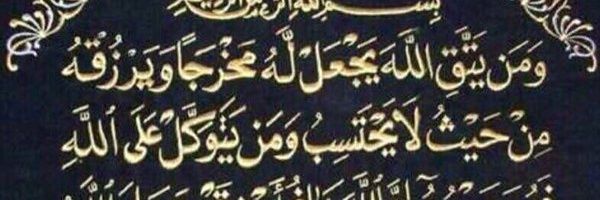 بسم الله الرحمن الرحيم
وَمَن يَتَّقِ اللَّهَ يَجْعَل لَّهُ مَخْرَجًا وَيَرْزُقْهُ
مِنْ حَيْثُ لَا يَحْتَسِبُ وَمَن يَتَوَكَّلْ عَلَى اللَّهِ